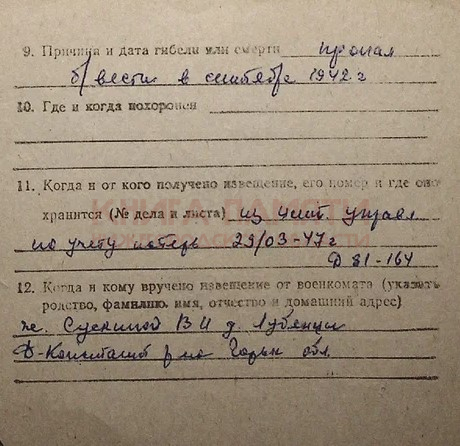 9. Причина и дата гибели или смерти пропал
б/вести в сентябре 1942 г
10. Где и когда похоронен
11. Когда и от кого получено извещение, его номер и где оно
хранится (№ дела и листа) из упр
КНИГА ПАМЯТИ
НИЖЕГОРОДСКОЙ ОБЛАСТИ
по учету потерь 29/03-47 г
Д 81-164
12. Когда и кому вручено извещение от военкомата (указать
родство, фамилию, имя, отчество и домашний адрес)
ж. В И д. Лубенцы
Д-Константин р-на Горьк обл.